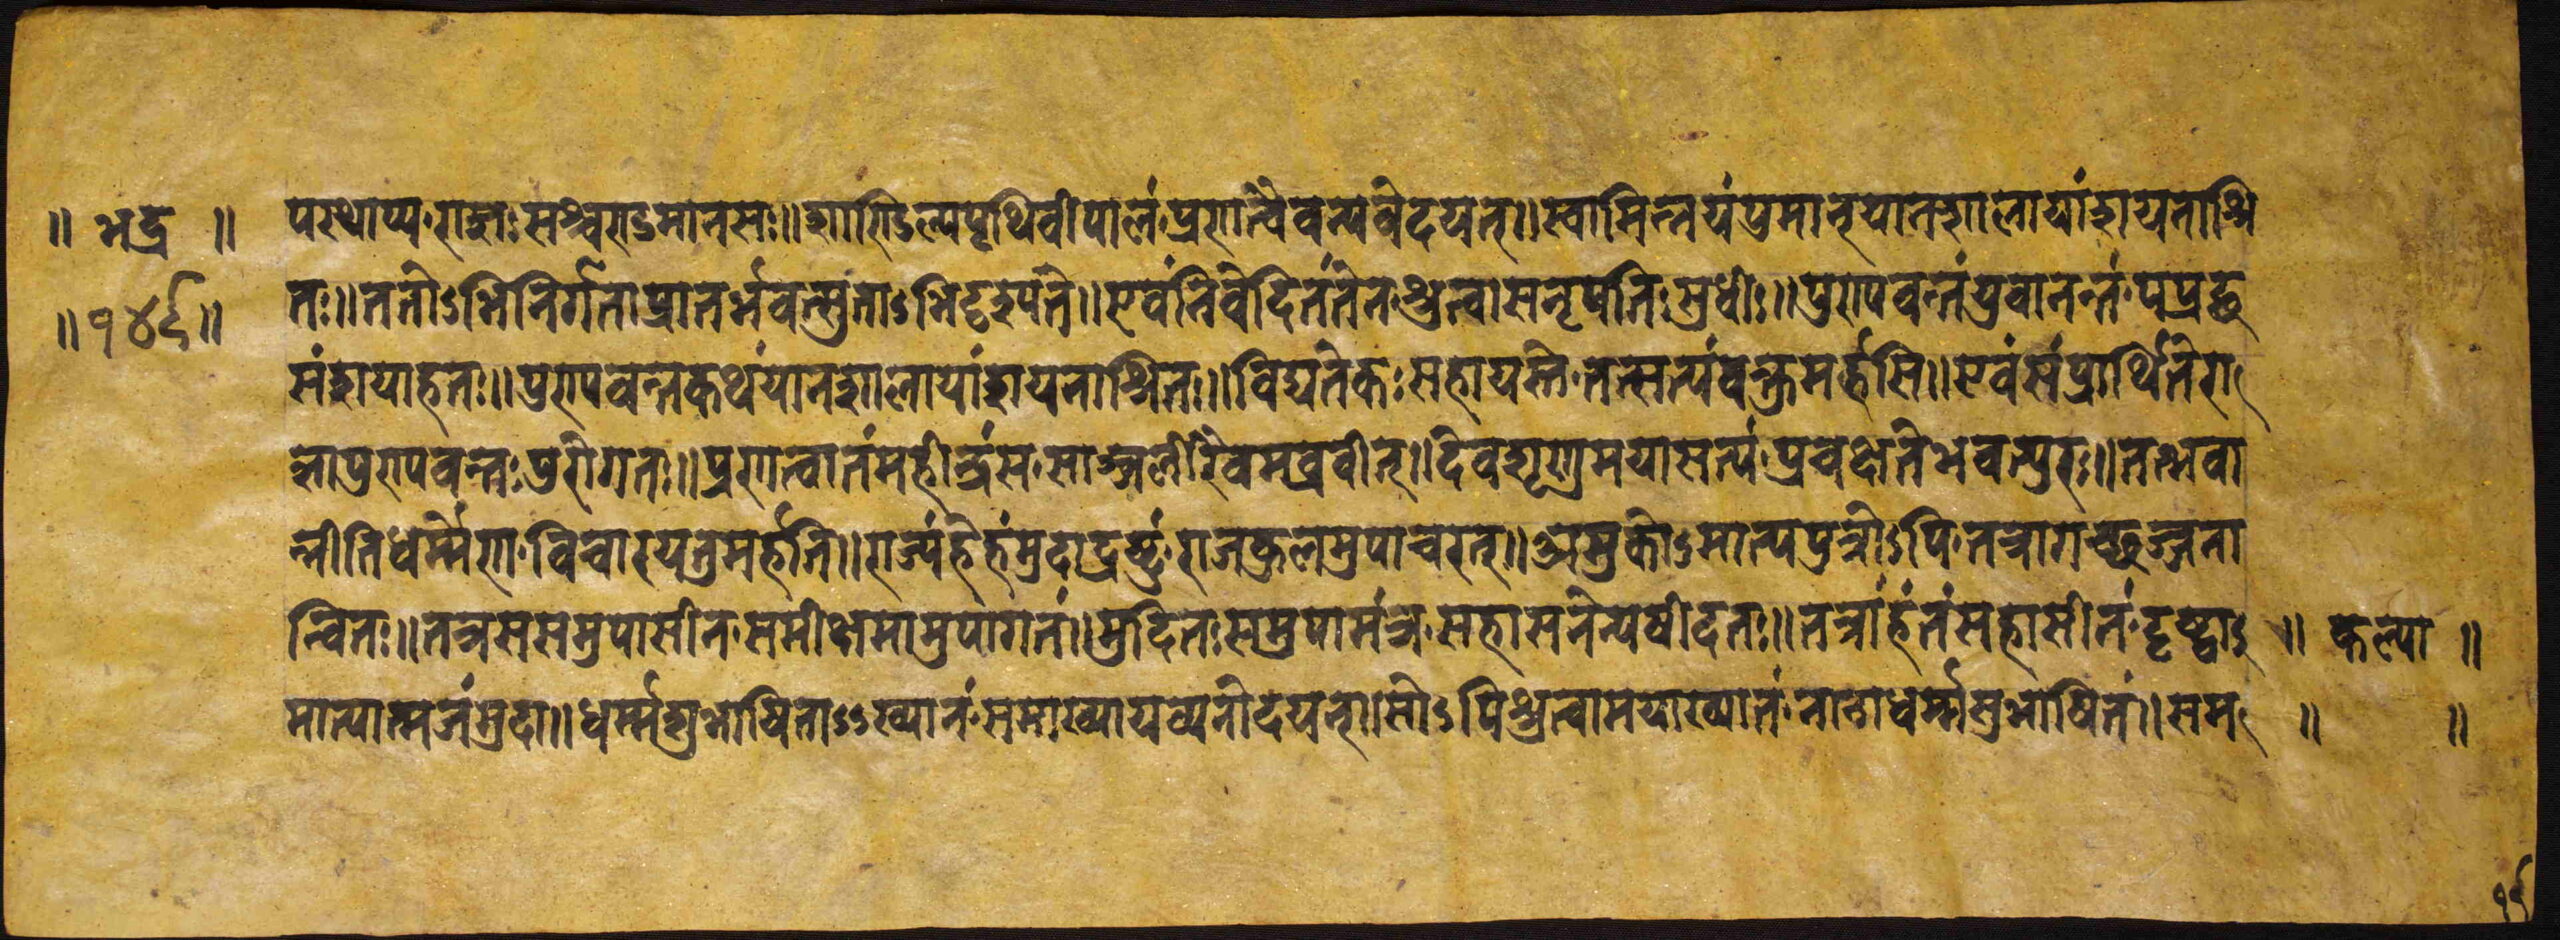 ॥ भद्र ॥ पस्थाप्य राज्ञः सश्चरा मानसः॥ पृथिवीपालं प्रणत्वैवन्यवेदयत्॥ स्वामिन्नयं पुमान् यानशालायां शयनाश्रि
॥ १४९॥ तः॥ ततोऽभिनिर्गतो प्रातर्भवन्सुतोऽभिदृश्यते॥ एवं निवेदितं तेन श्रुत्वा स नृपतिः सुधीः॥ पुरुषवन्तं युवानन्तं पप्रच्छ
सं॥ पुरुषवन्त कथं यानशालायां शयनाश्रितः॥ विद्यते कः सहायस्ते तत्सत्यं वक्तुमर्हसि॥ एवं संप्रार्थिते रा
ज्ञा पुरुषवन्तः पुरोगतः॥ प्रणत्वा तं महीन्द्रं स साञ्जलिरेवमब्रवीत्॥ देव शृणु मया सत्यं प्रवक्ष्यते भवत्पुरः॥ तद्भवा
न्नीतिधर्म्मेण विचारयतुमर्हति॥ राज्यंहेहं मुदा द्रष्टुं राजकुलमुपाचरत्॥ अमुकोऽमात्यपुत्रोऽपि तत्रागच्छज्जना
न्वितः॥ तत्र स समुपासीन समीक्ष मामुपागतं॥ मुदितः समुपामंत्र्य सहासने न्यषीदतः॥ तत्राहं तं सहासीनं दृष्ट्वाऽ ॥ कल्पा ॥
मात्यात्मजं मुदा॥ धर्म्मशुभाषिताऽऽख्यानं समाख्याय व्यनोदयत्॥ सोऽपि श्रुत्वा मयाख्यातं नानाधर्म्मसुभाषितं॥ सम ॥ ॥